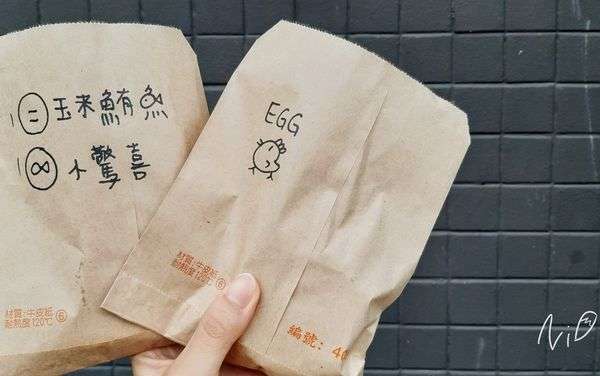 玉米鮪魚
小驚喜
材質:牛皮紙
耐熱度120℃ 6
EGG
材質:牛皮紙
耐熱度120℃ 6
編號: 4